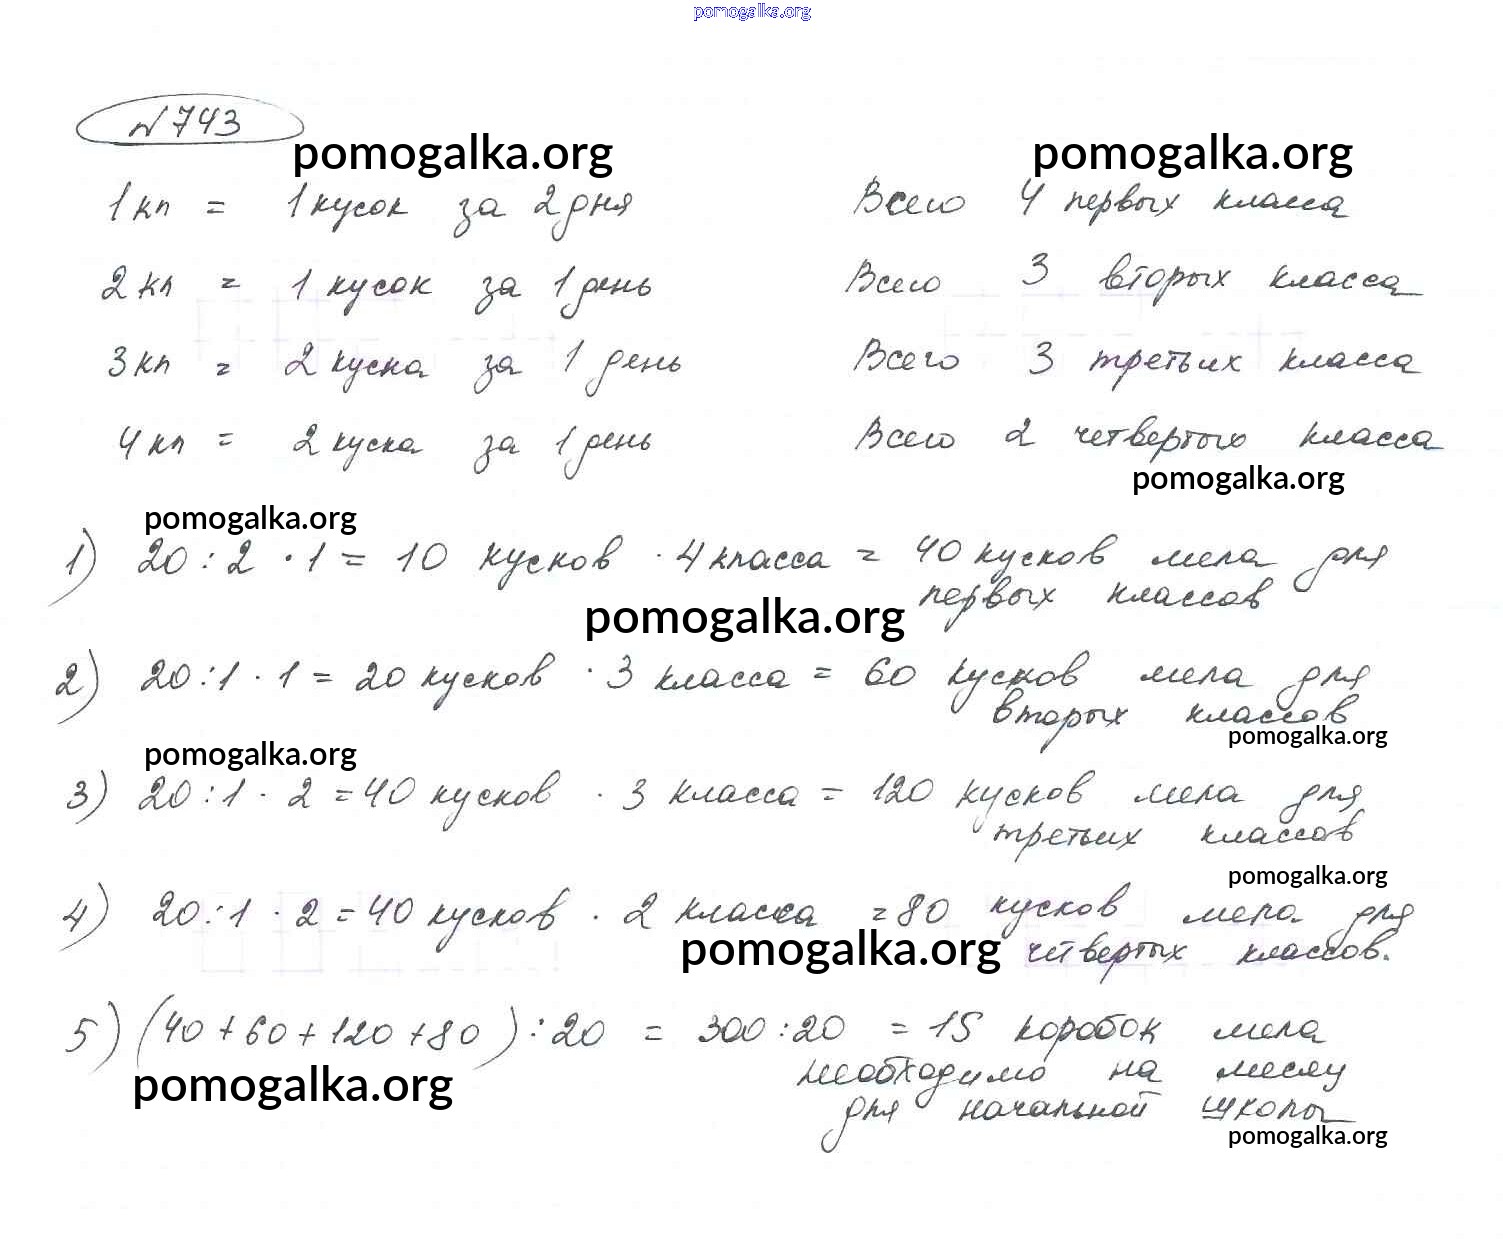 pomogalka.org
№743
pomogalka.org pomogalka.org
1 кл = 1 кусок за 2 дня Всего 4 первых класса
2 кл = 1 кусок за 1 день Всего 3 вторых класса
3 кл = 2 куска за 1 день Всего 3 третьих класса
4 кл = 2 куска за 1 день Всего 2 четвертых класса
pomogalka.org
pomogalka.org
1) 20 : 2 · 1 = 10 кусков · 4 класса = 40 кусков мела для
первых классов
pomogalka.org
2) 20 : 1 · 1 = 20 кусков · 3 класса = 60 кусков мела для
вторых классов
pomogalka.org
pomogalka.org
3) 20 : 1 · 2 = 40 кусков · 3 класса = 120 кусков мела для
третьих классов
pomogalka.org
4) 20 : 1 · 2 = 40 кусков · 2 класса = 80 кусков мела для
pomogalka.org четвертых классов.
5) (40 + 60 + 120 + 80) : 20 = 300 : 20 = 15 коробок мела
необходимо на месяц
pomogalka.org
для начальной школы
pomogalka.org